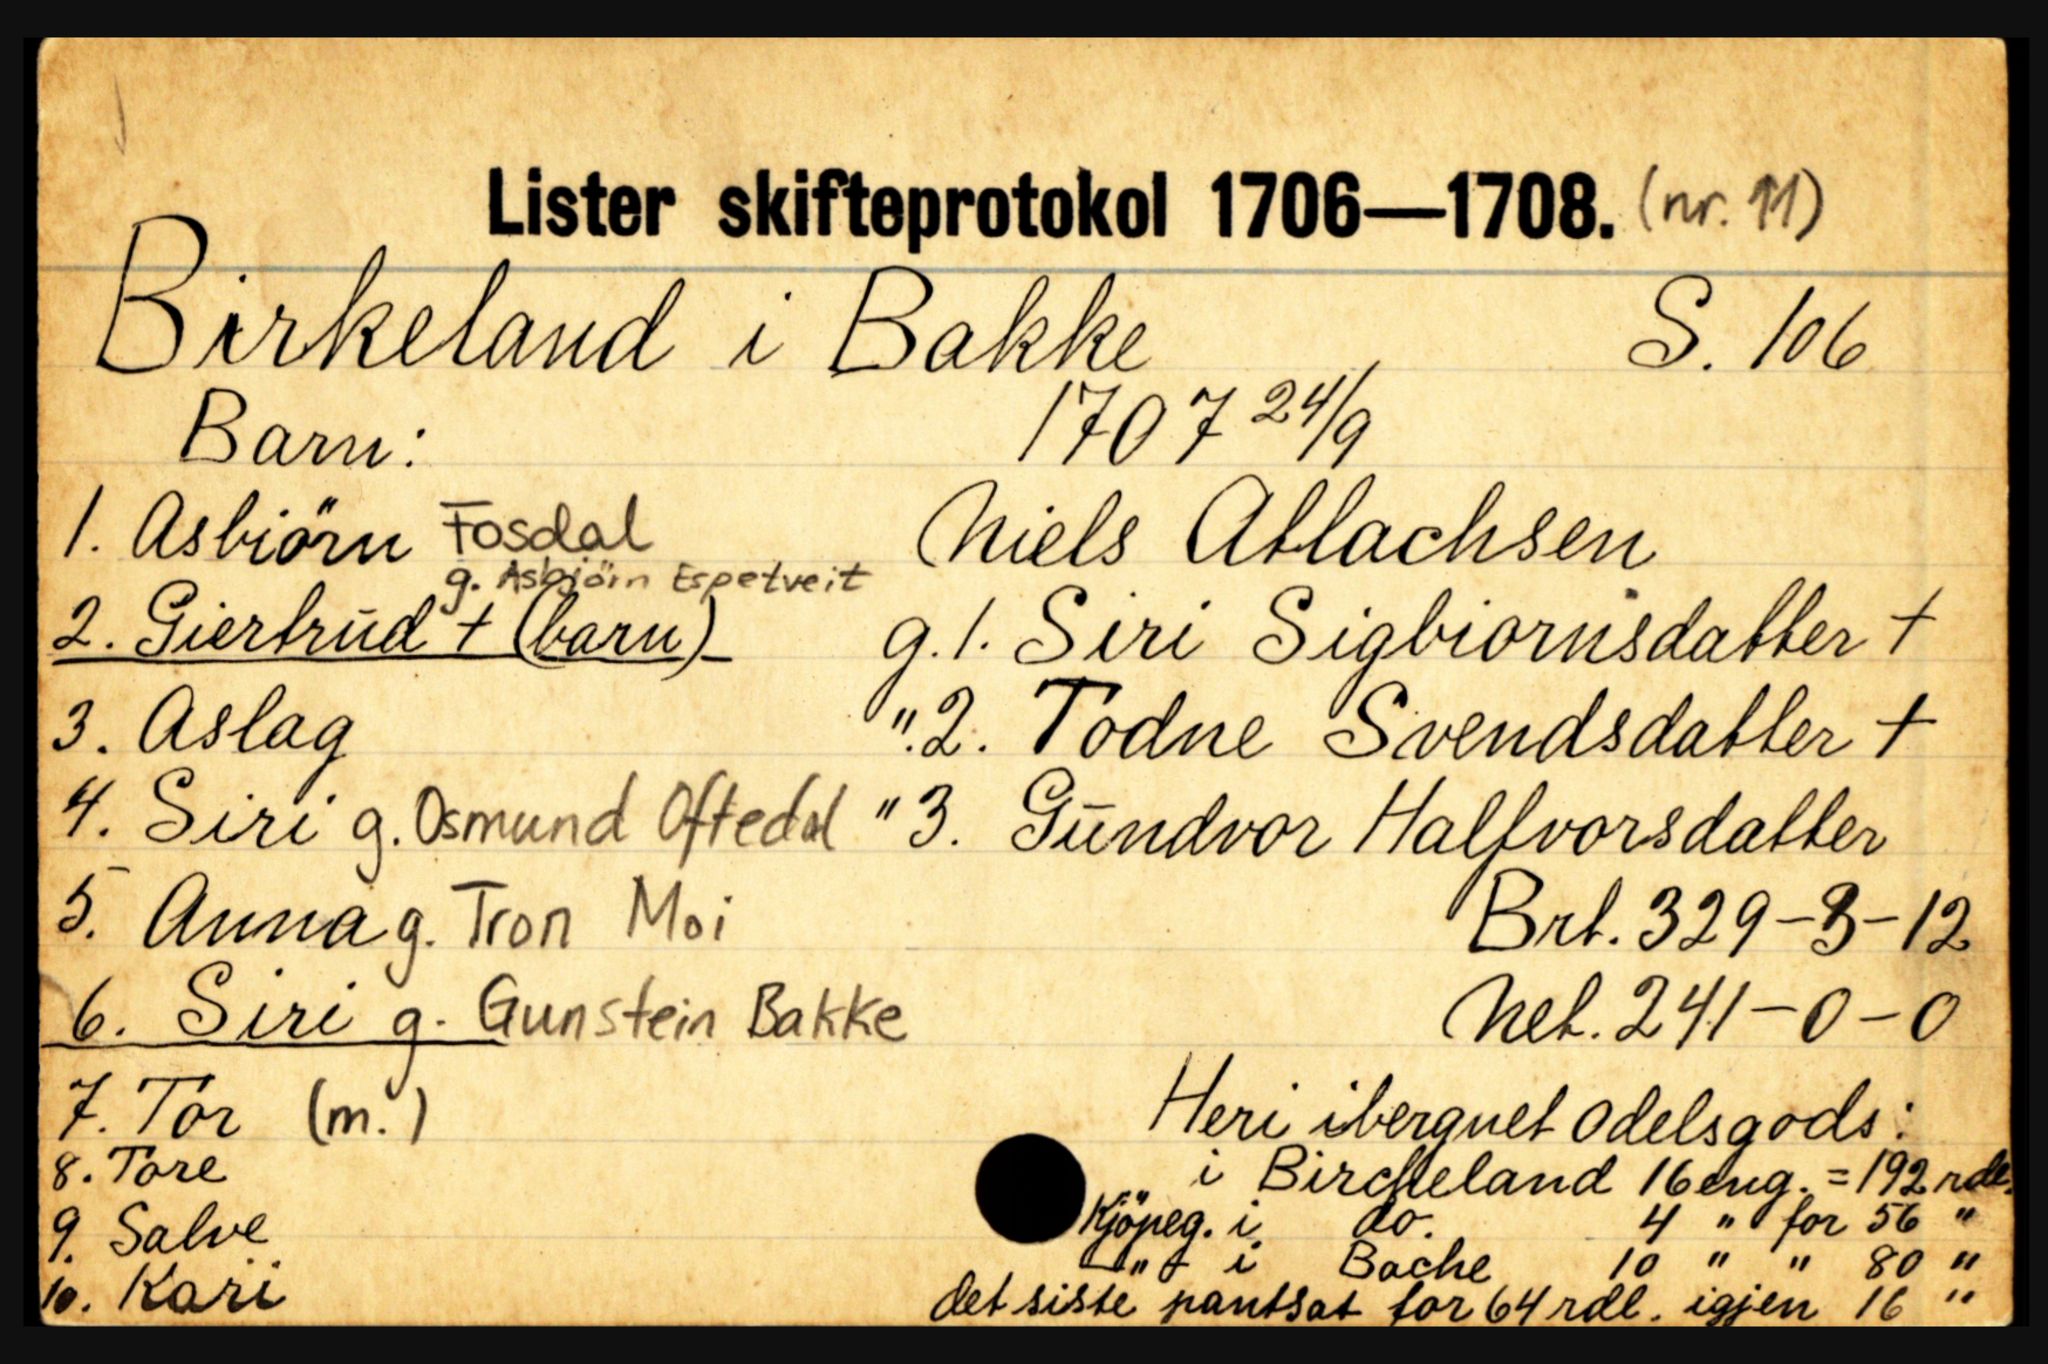 Lister skifteprotokol 1706—1708. (nr. 11)
Birkeland i Bakke S. 106
Barn: 1707 24/9
1. Asbiörn Fosdal Niels Atlachsen
g. Asbjörn Espetveit
2. Giertrūd + (barn) g. 1. Siri Sigbiornsdatter +
3. Aslag ". 2. Todne Svendsdatter +
4. Siri g. Osmund Oftedal " 3. Gūndvor Halfvorsdatter
5. Anna g. Tron Moi Brt. 329-3-12
6. Siri g. Gunstein Bakke Net. 241-0-0
7. Tor (m.) Heri ibergnet odelsgods:
8. Tore i Bircheland 16 eng. = 192 rdl.
9. Salve Kjöpeg. i do. 4 " for 56 "
" i Bache 10 " " 80 "
10. Kari det siste pantsat for 64 rdl. igjen 16 "